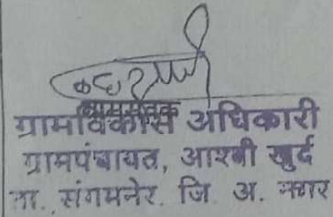 ग्रामसेवक
ग्रामविकास अधिकारी
ग्रामपंचायत, आश्वी खुर्द
ता. संगमनेर. जि. अ. नगर